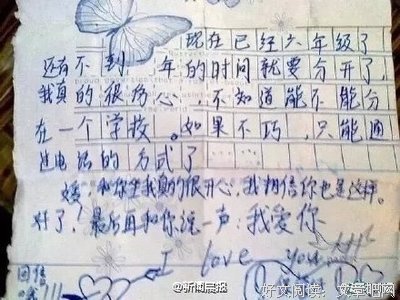 现在已经六年级了
还有不到一年的时间就要分开了，
我真的很伤心，不知道能不能分
在一个学校。如果不巧，只能通
过电话的方式了
和你坐我真的很开心，我相信你也是这样。
对了！最后再和你说一声：我爱你
I love you
回信
@新闻晨报
好文阅读：文章吧网